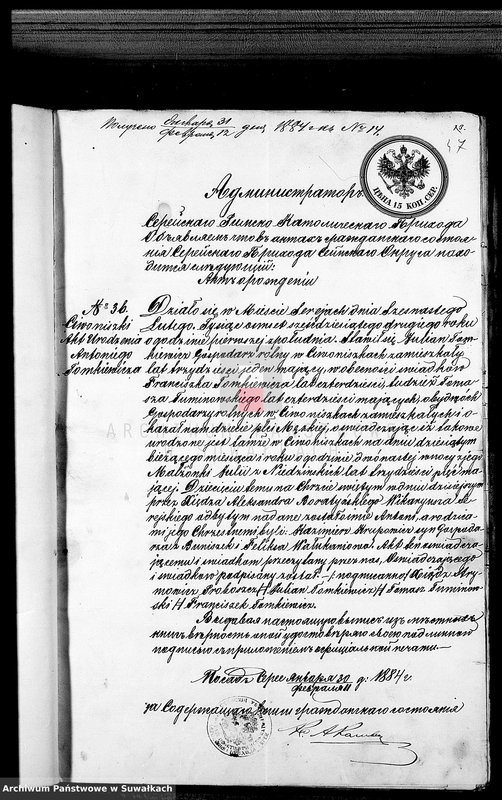 Получено Января 31 / Февраля 12 дня 1884 г. за № 14.
47
ЦѢНА 15 КОП. СЕР.
Администраторъ
Серейскаго Римско-Католическаго Прихода
Объявляетъ что въ актахъ гражданскаго состоя-
нія Серейскаго Прихода Сейнскаго Округа нахо-
дится слѣдующій:
Актъ рожденія
№ 36.
Ciwoniszki
Akt Urodzenia
Antoniego
Tomkiewicza
Działo się w Mieście Serejach dnia Szesnastego
Lutego, Tysiąc osmset sześćdziesiątego drugiego roku
o godzinie pierwszej z południa. Stawił się Julian Tom-
kiewicz Gospodarz rolny w Ciwoniszkach zamieszkały
lat trzydzieści jeden mający, w obecności świadków
Franciszka Tomkiewicza lat czterdzieści, tudzież Toma-
sza Tuminowskiego lat czterdzieści mających, obydwóch
Gospodarzy rolnych w Ciwoniszkach zamieszkałych i o-
kazał nam dziecię płci Męzkiej, oświadczając iż takowe
urodzone jest tamże w Ciwoniszkach na dniu dziesiątym
bieżącego miesiąca i roku o godzinie dwónastej w nocy z jego
Małżonki Julii z Niedzinskich lat trzydzieści ma-
jącej. Dziecięciu temu na Chrzcie świętym w dniu dzisiejszym
przez Xiędza Aleksandra Boratyńskiego Wikaryusza Se-
rejskiego odbytym nadane zostało imie Antoni, a rodzica-
mi jego Chrzestnemi byli: Kazimierz syn Gospoda-
rza z Buniszek i Feliksa Walukaniowa. Akt ten oświadcza-
jącemu i świadkom przeczytany przez nas, Oświadczającego
i świadków podpisany został. —/: podpisano:/ Xiądz Szy-
monowicz Proboszcz /-/ Julian Tomkiewicz /-/ Tomasz Tuminow-
ski /-/ Franciszek Tomkiewicz.
Выдавая настоящую выпись изъ мѣстныхъ
книгъ вѣрность ея удостовѣряю своею
подписью съ приложеніемъ оффиціальной печати.—
Посадъ Серее Января 30 / Февраля 11 д. 1884 г.
за Содержащаго книги гражданскаго состоянія
Кс. А
Archiwum Państwowe w Suwałkach